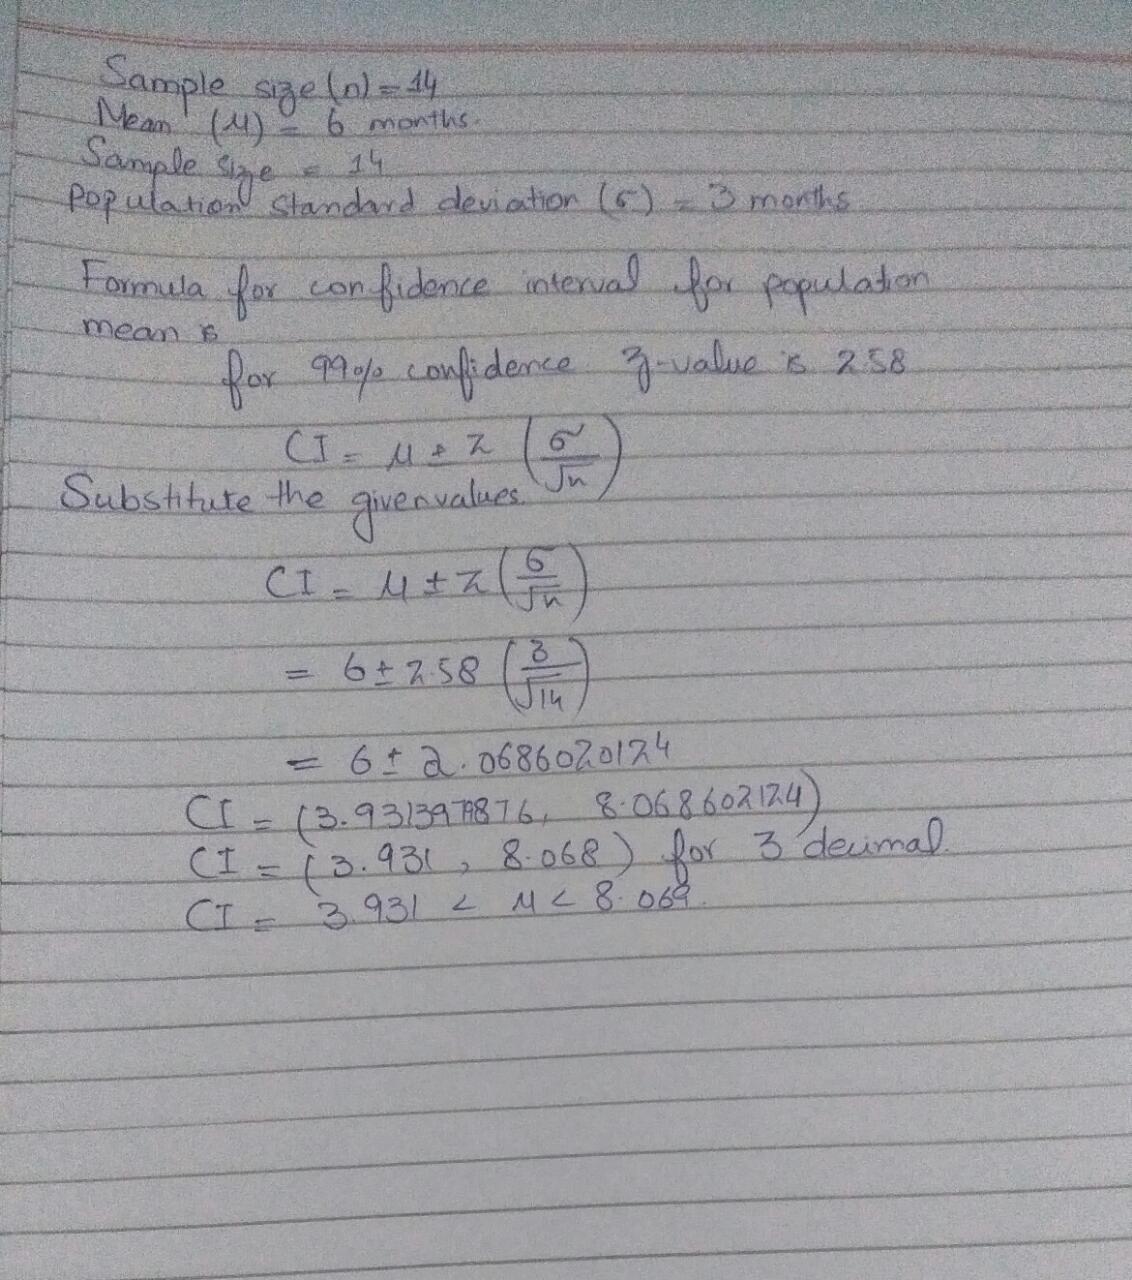 Sample size (n) = 14
Mean (μ) = 6 months.
Sample size = 14
Population standard deviation (σ) = 3 months
Formula for confidence interval for population
mean is
for 99% confidence z-value is 2.58
CI = μ ± z (σ/√n)
Substitute the given values.
CI = μ ± z (σ/√n)
= 6 ± 2.58 (3/√14)
= 6 ± 2.0686020124
CI = (3.9313979876, 8.068602124)
CI = (3.931, 8.068) for 3 decimal.
CI = 3.931 < μ < 8.069.